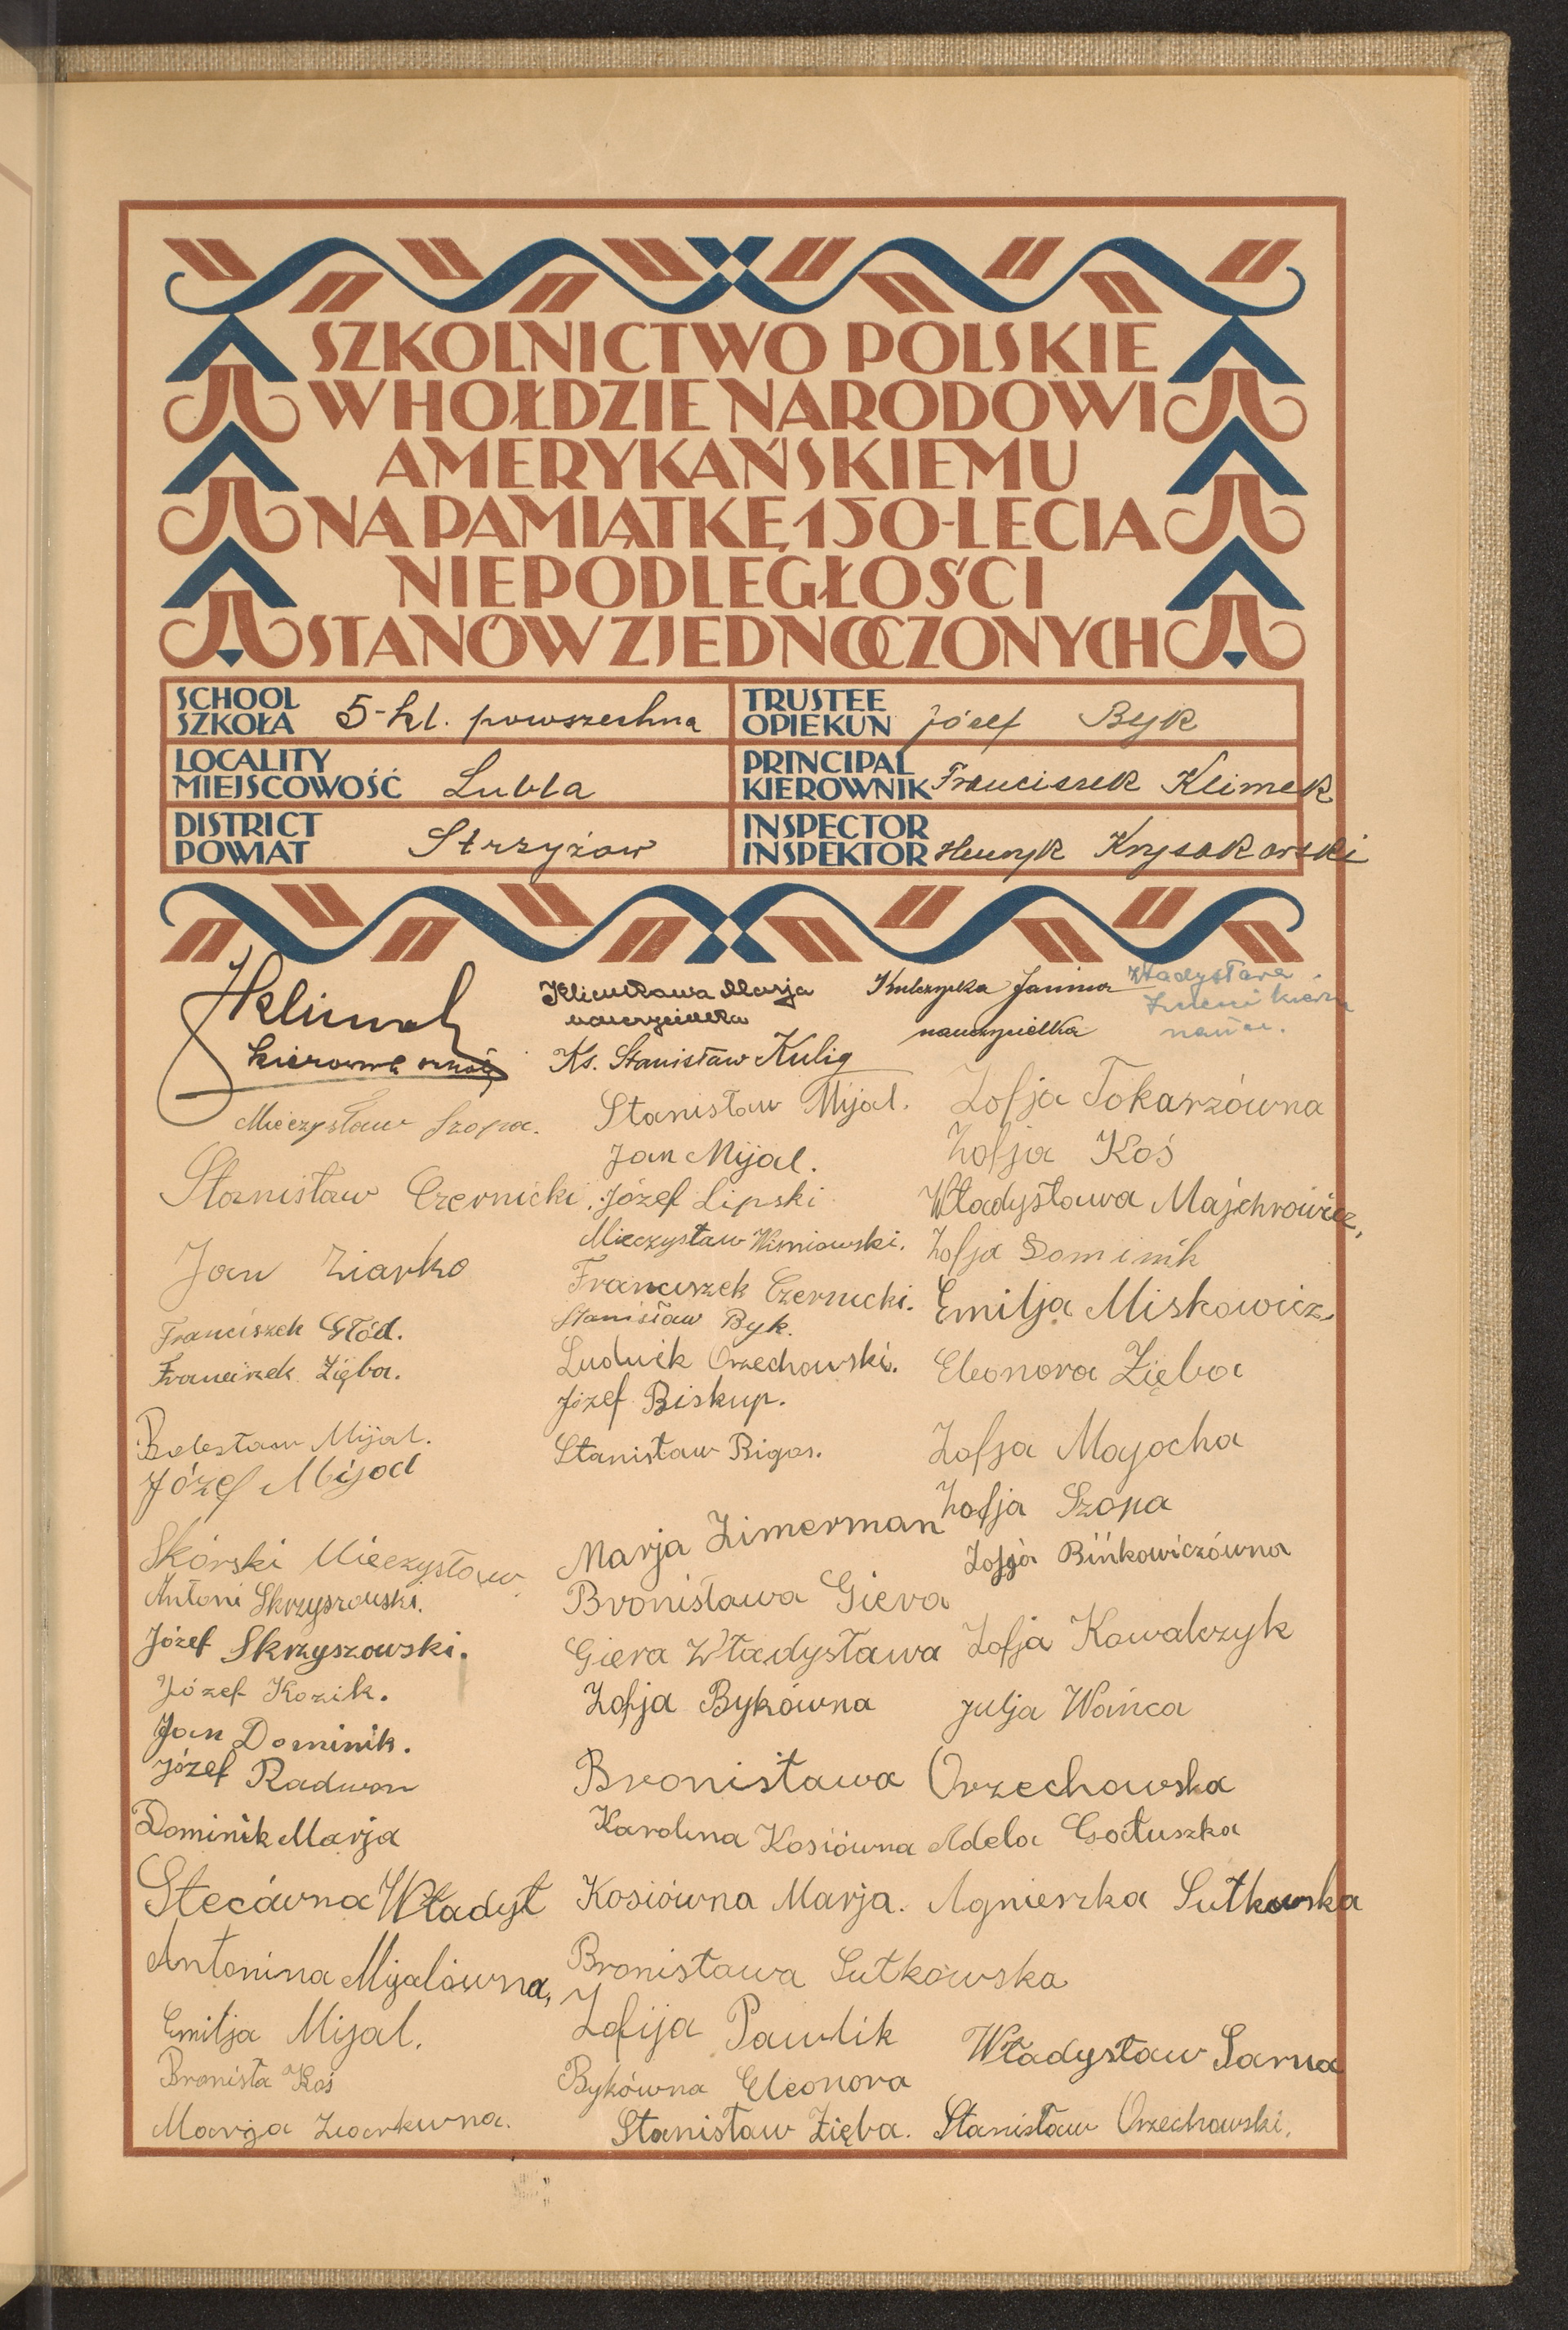 SZKOLNICTWO POLSKIE
W HOŁDZIE NARODOWI
AMERYKAŃSKIEMU
NA PAMIĄTKĘ 150-LECIA
NIEPODLEGŁOŚCI
STANÓW ZJEDNOCZONYCH
SCHOOL
SZKOŁA 5-kl. powszechna
TRUSTEE
OPIEKUN Józef Byk
LOCALITY
MIEJSCOWOŚĆ Lubla
PRINCIPAL
KIEROWNIK Franciszek Klimek
DISTRICT
POWIAT Strzyżow
INSPECTOR
INSPEKTOR Henryk
FKlimek
kierownik szkoły
Klimkowa Marja
nauczycielka
Kulczycka Janina
nauczycielka
Władysława
naucz.
Ks. Stanisław Kulig
Mieczysław Szopa.
Stanisław Czernicki.
Jan Ziarko
Franciszek Głód.
Franciszek Zięba.
Bolesław Mijal.
Józef Mijal
Skórski Mieczysław
Antoni Skrzyszowski.
Józef Skrzyszowski.
Józef Kozik.
Jan Dominik.
Józef Radwan
Dominik Marja
Stecówna Władysł
Antonina Mijalówna,
Emilja Mijal.
Bronisła Koś
Marja Ziarkówna.
Stanisław Mijal.
Jan Mijal.
Józef Lipski
Mieczysław Wiśniowski.
Franciszek Czernicki.
Stanisław Byk.
Ludwik Orzechowski.
Józef Biskup.
Stanisław Bigos.
Marja Zimerman
Bronisława Giera
Giera Władysława
Zofja Bykówna
Bronisława Orzechowska
Karolina Kosiówna
Kosiówna Marja.
Bronisława Sutkowska
Zofija Pawlik
Bykówna Eleonora
Stanisław Zięba.
Zofja Tokarzówna
Zofja Koś
Władysława Majchrowicz,
Zofja Dominik
Emilja Miskowicz
Eleonora Zięba
Zofja Mayocha
Zofja Szopa
Zofja Bińkowiczówna
Zofja Kowalczyk
Julja Wańca
Adela Gałuszka
Agnieszka Sutkowska
Władysław Sarna
Stanisław Orzechowski.